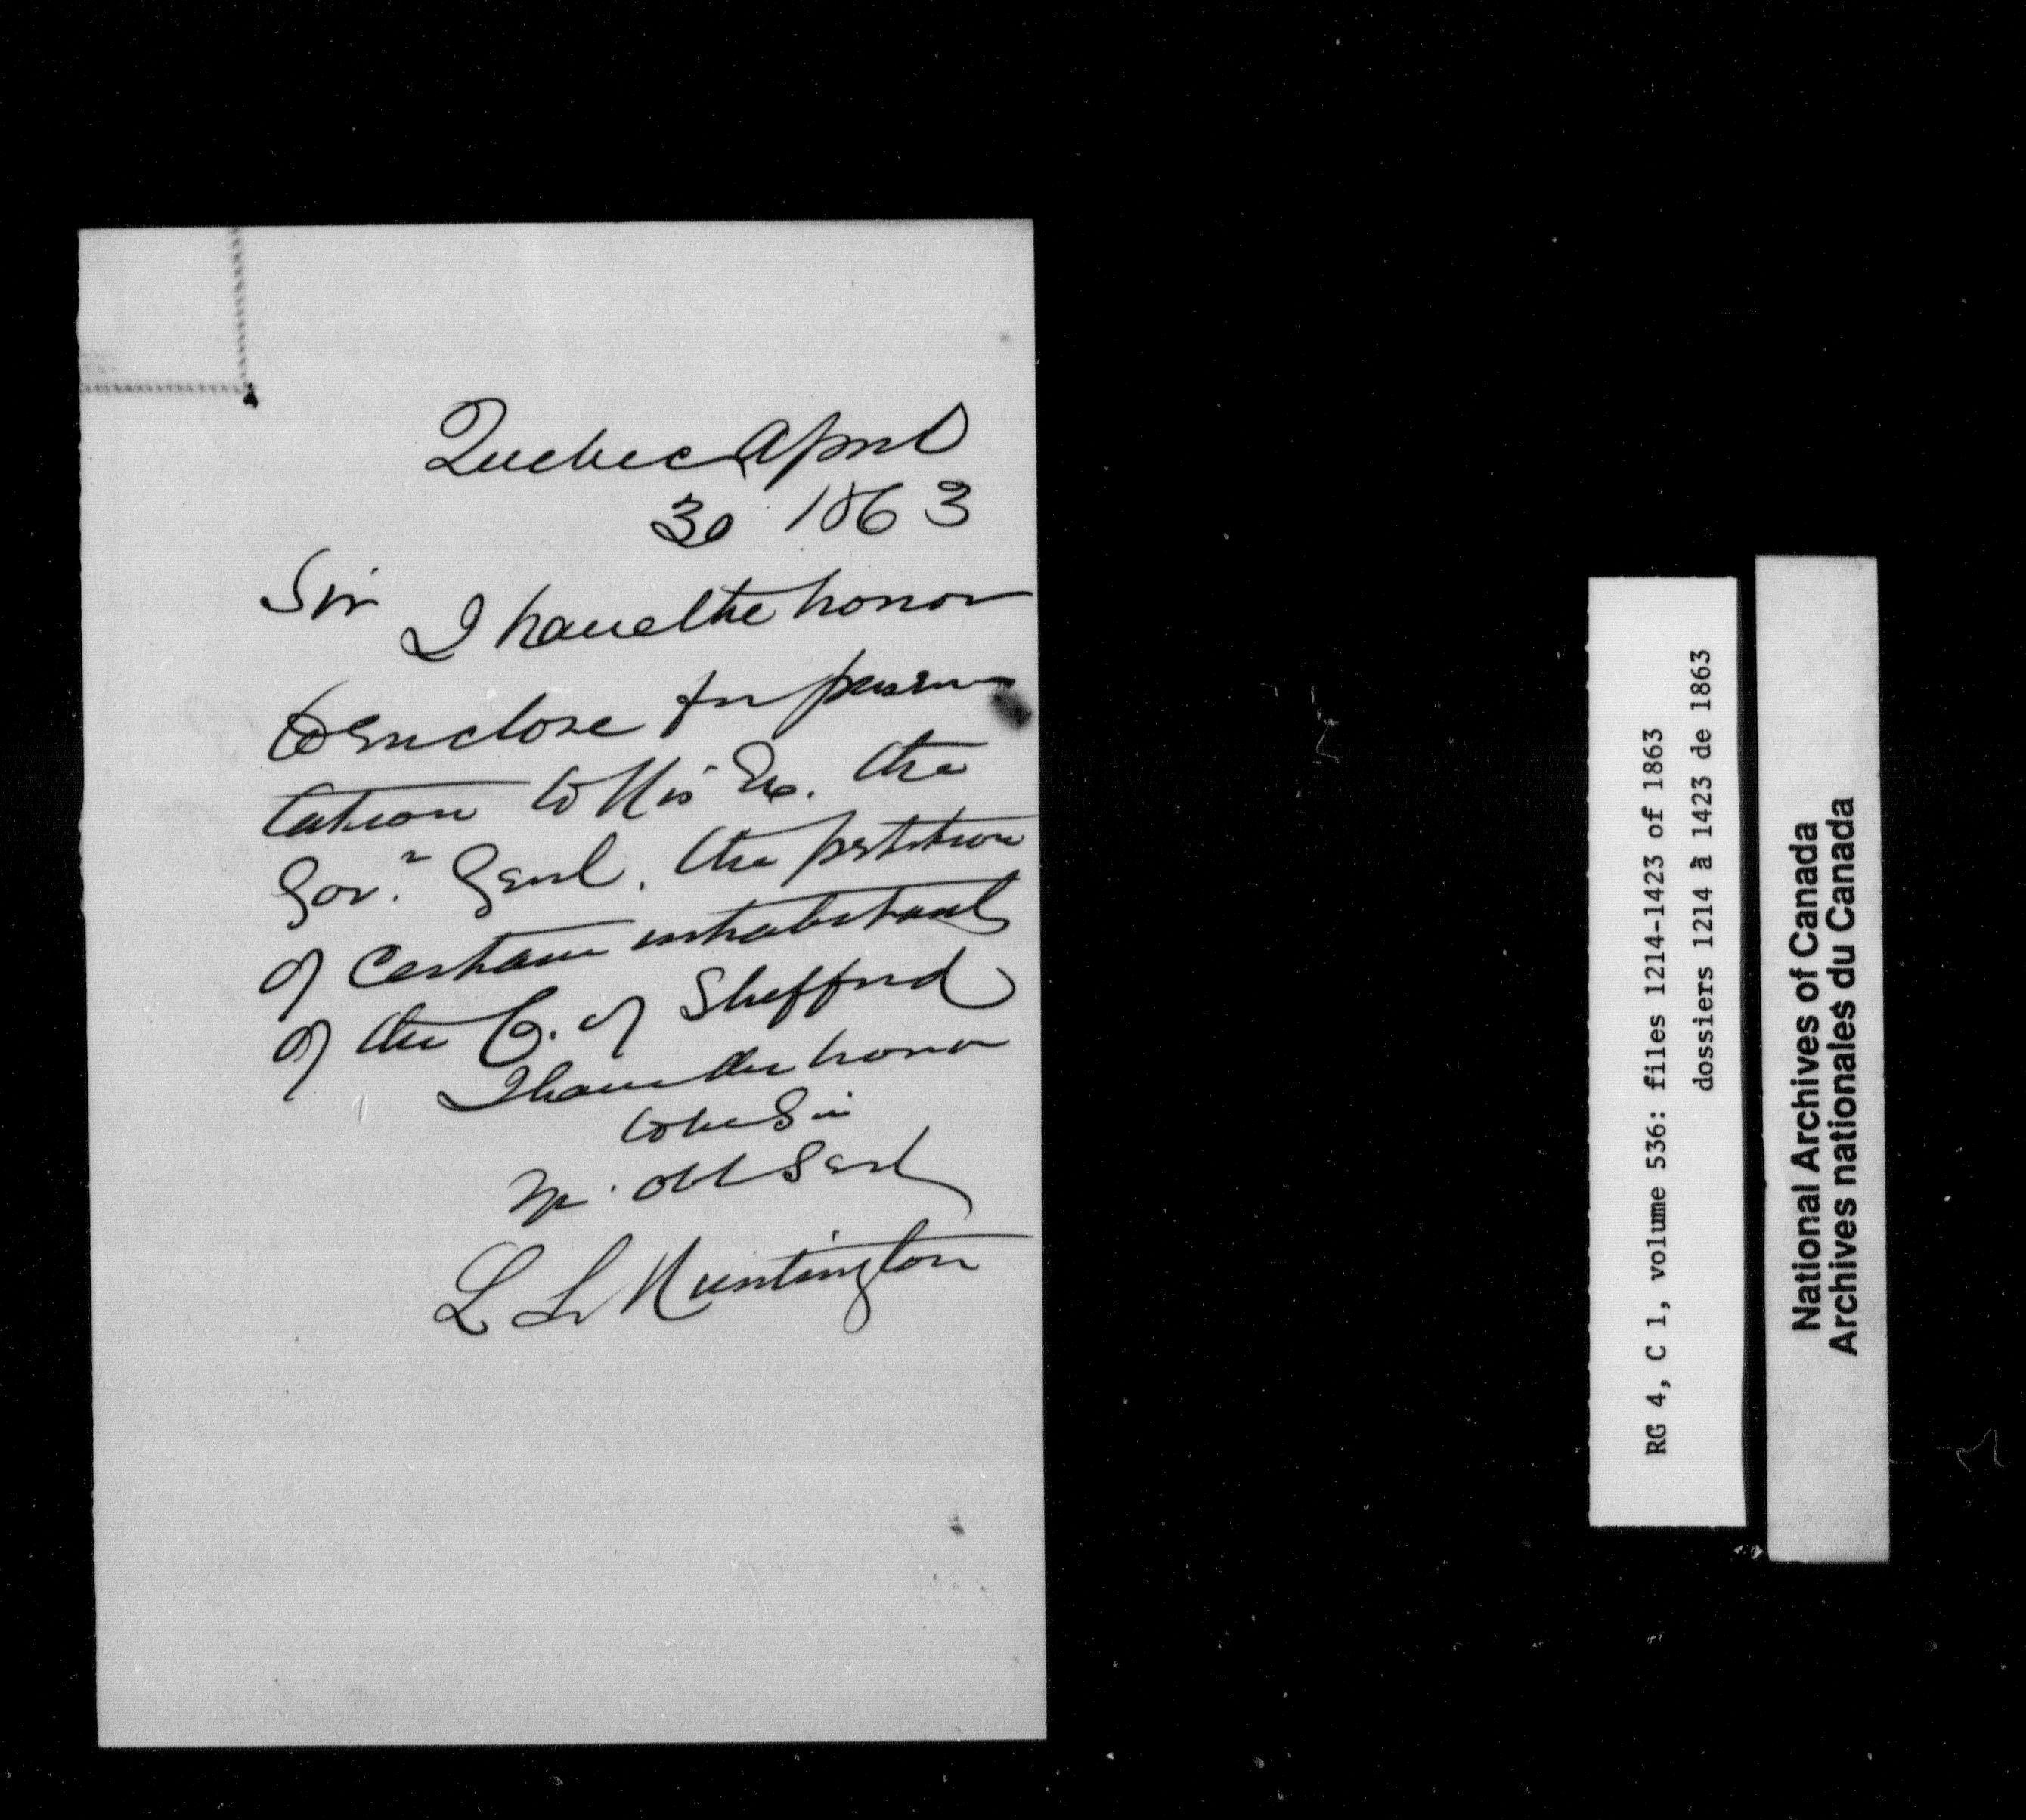 Quebec April
30 1863
Sir
I have the honor
to enclose for presen
tation to His Ex. the
Govr. Genl. the petition
of Certain inhabitants
of the C. of Shefford
I have the honor
to be Sir
yr. obt Servt
L S Huntington
RG 4, C 1, volume 536: files 1214-1423 of 1863
dossiers 1214 à 1423 de 1863
National Archives of Canada
Archives nationales du Canada